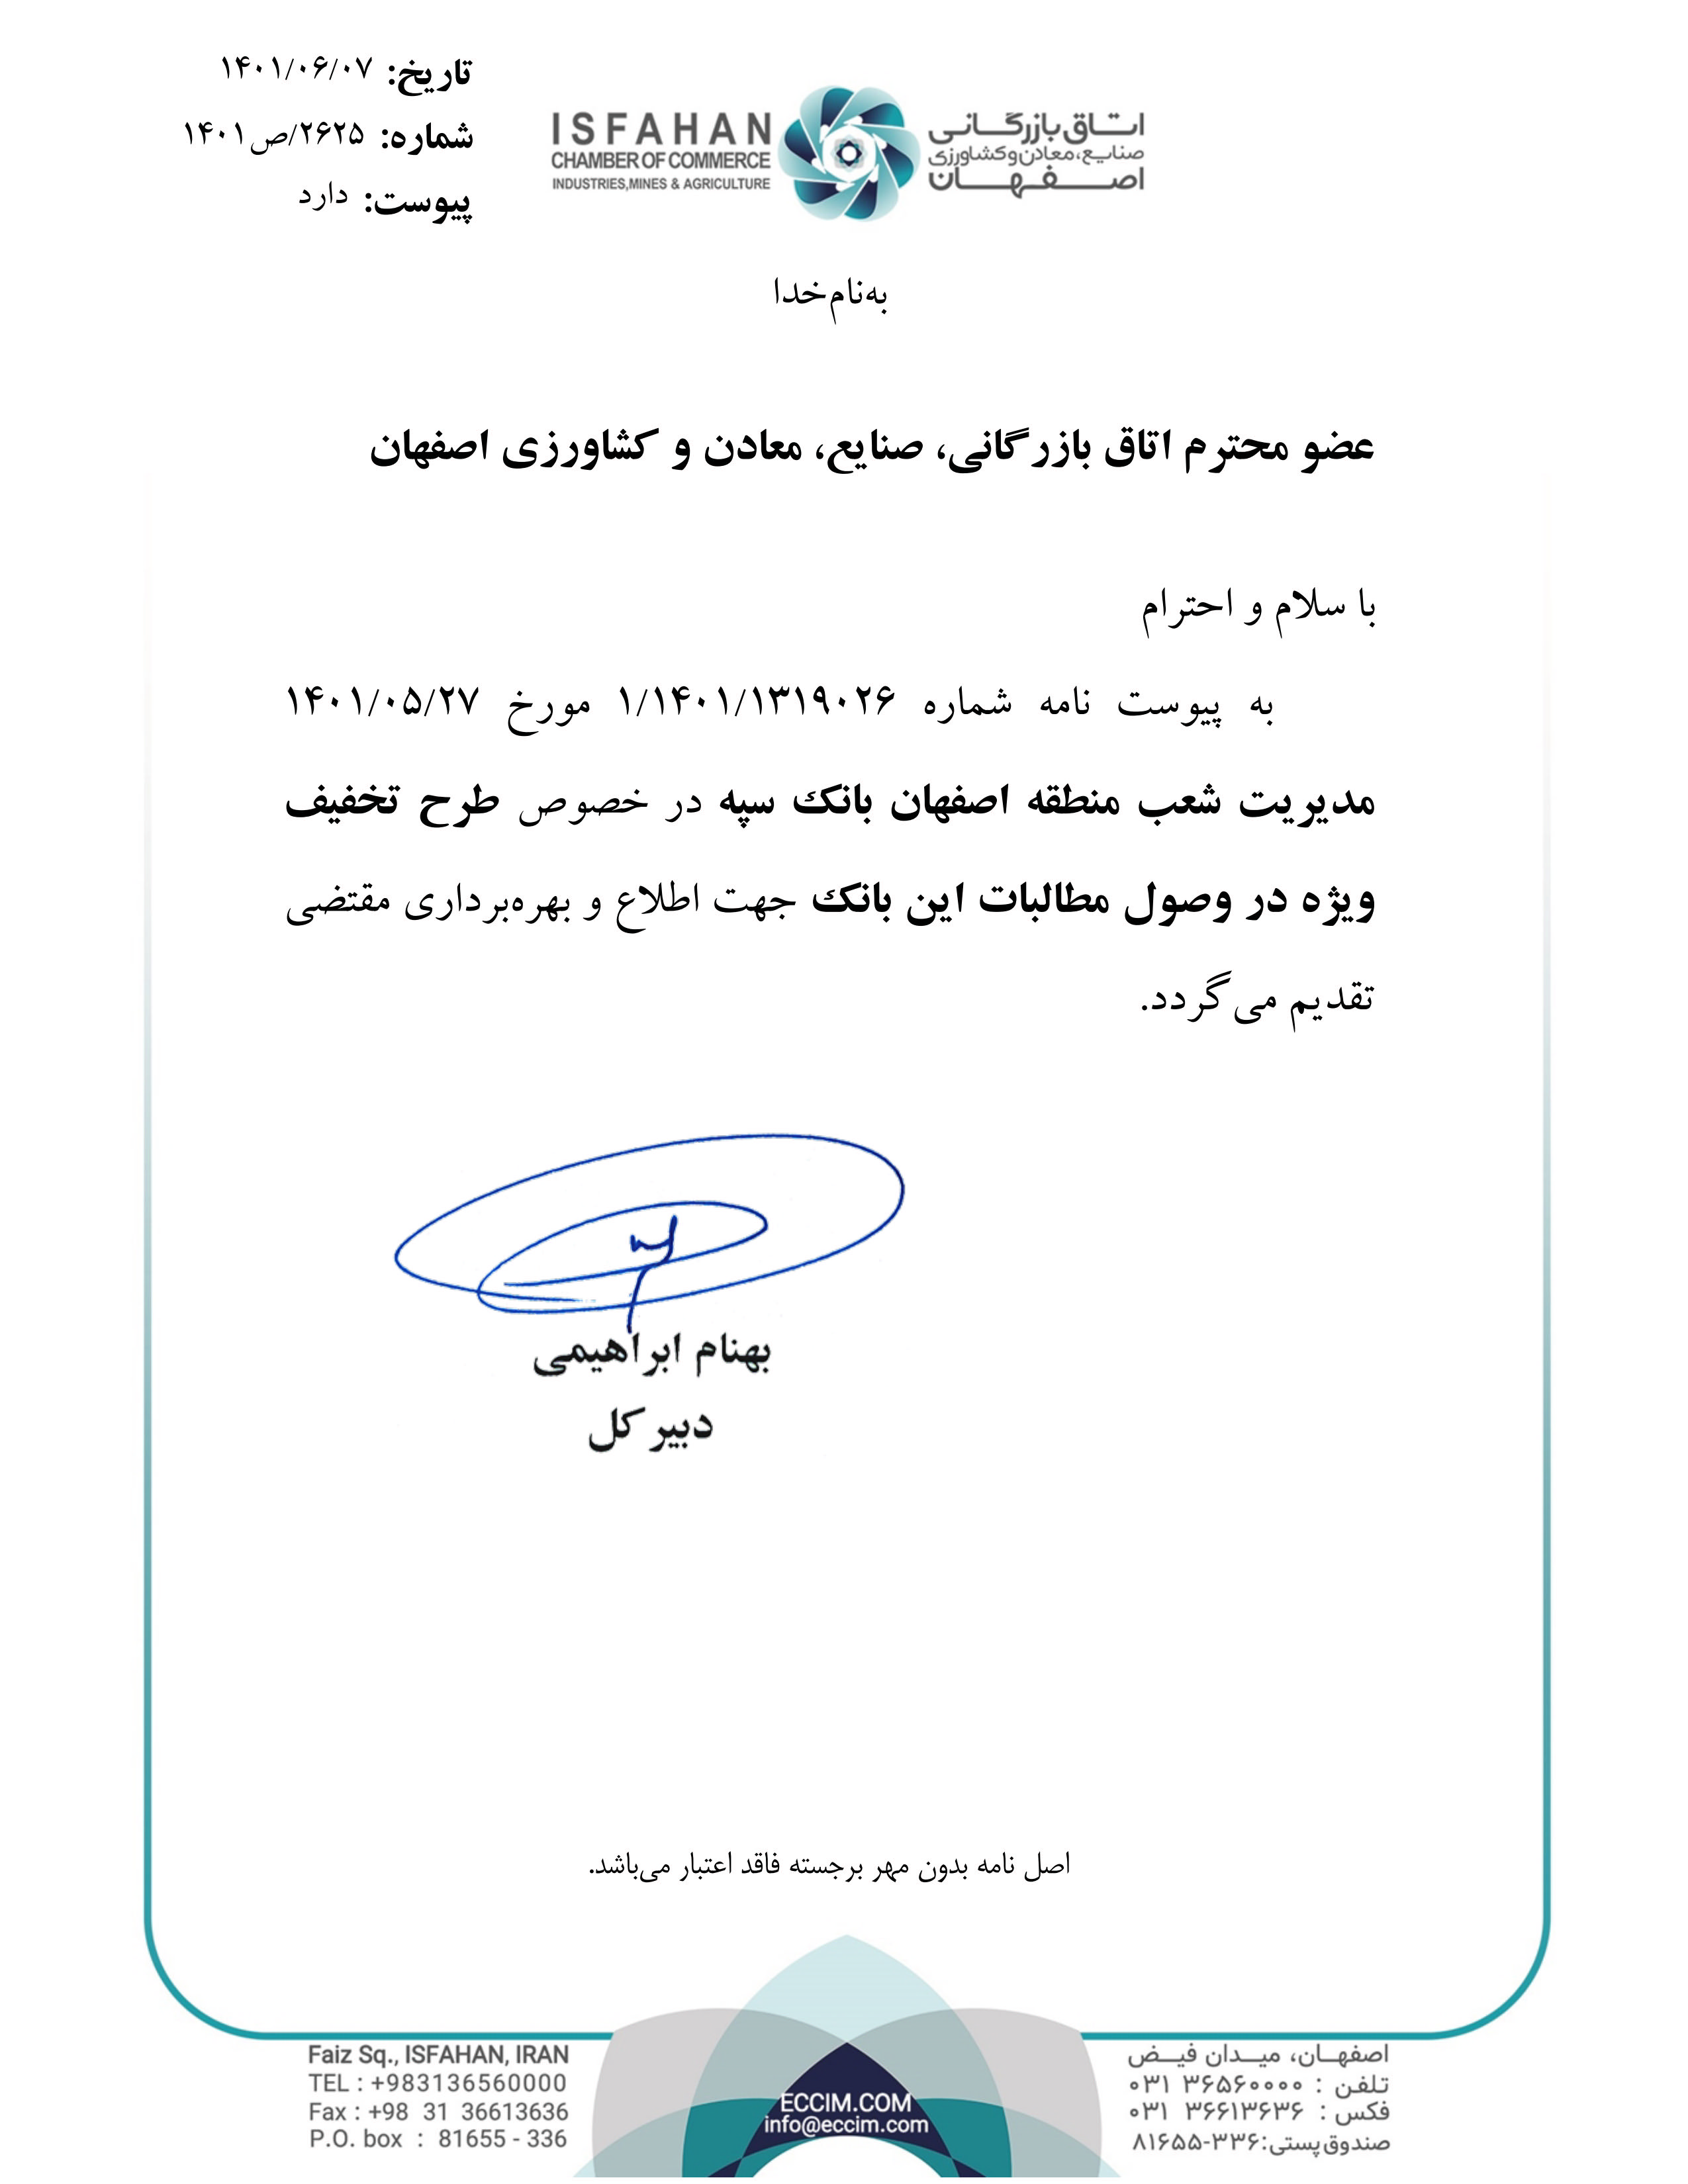 تاریخ: ۱۴۰۱/۰۶/۰۷
شماره: ۲۶۲۵/ص۱۴۰۱
پیوست: دارد
ISFAHAN
CHAMBER OF COMMERCE
INDUSTRIES,MINES & AGRICULTURE
اتاق بازرگانی
صنایع، معادن و کشاورزی
اصفهان
به‌نام‌خدا
عضو محترم اتاق بازرگانی، صنایع، معادن و کشاورزی اصفهان
با سلام و احترام
به پیوست نامه شماره ۱/۱۴۰۱/۱۳۱۹۰۲۶ مورخ ۱۴۰۱/۰۵/۲۷
مدیریت شعب منطقه اصفهان بانک سپه در خصوص طرح تخفیف
ویژه در وصول مطالبات این بانک جهت اطلاع و بهره‌برداری مقتضی
تقدیم می‌گردد.
بهنام ابراهیمی
دبیر کل
اصل نامه بدون مهر برجسته فاقد اعتبار می‌باشد.
Faiz Sq., ISFAHAN, IRAN
TEL : +983136560000
Fax : +98 31 36613636
P.O. box : 81655 - 336
ECCIM.COM
info@eccim.com
اصفهان، میدان فیض
تلفن : ۳۶۵۶۰۰۰۰ ۰۳۱
فکس : ۳۶۶۱۳۶۳۶ ۰۳۱
صندوق پستی: ۸۱۶۵۵-۳۳۶